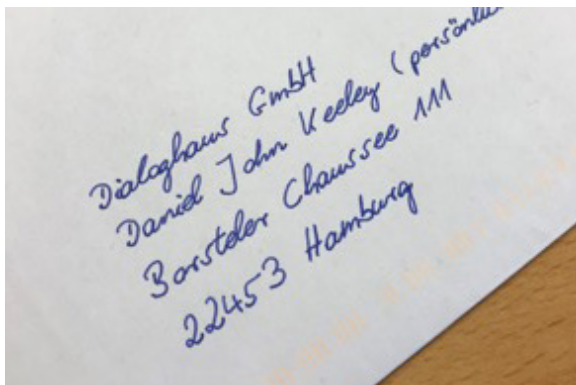 Dialoghaus GmbH
Daniel John Keeley
Borsteler Chaussee 111
22453 Hamburg